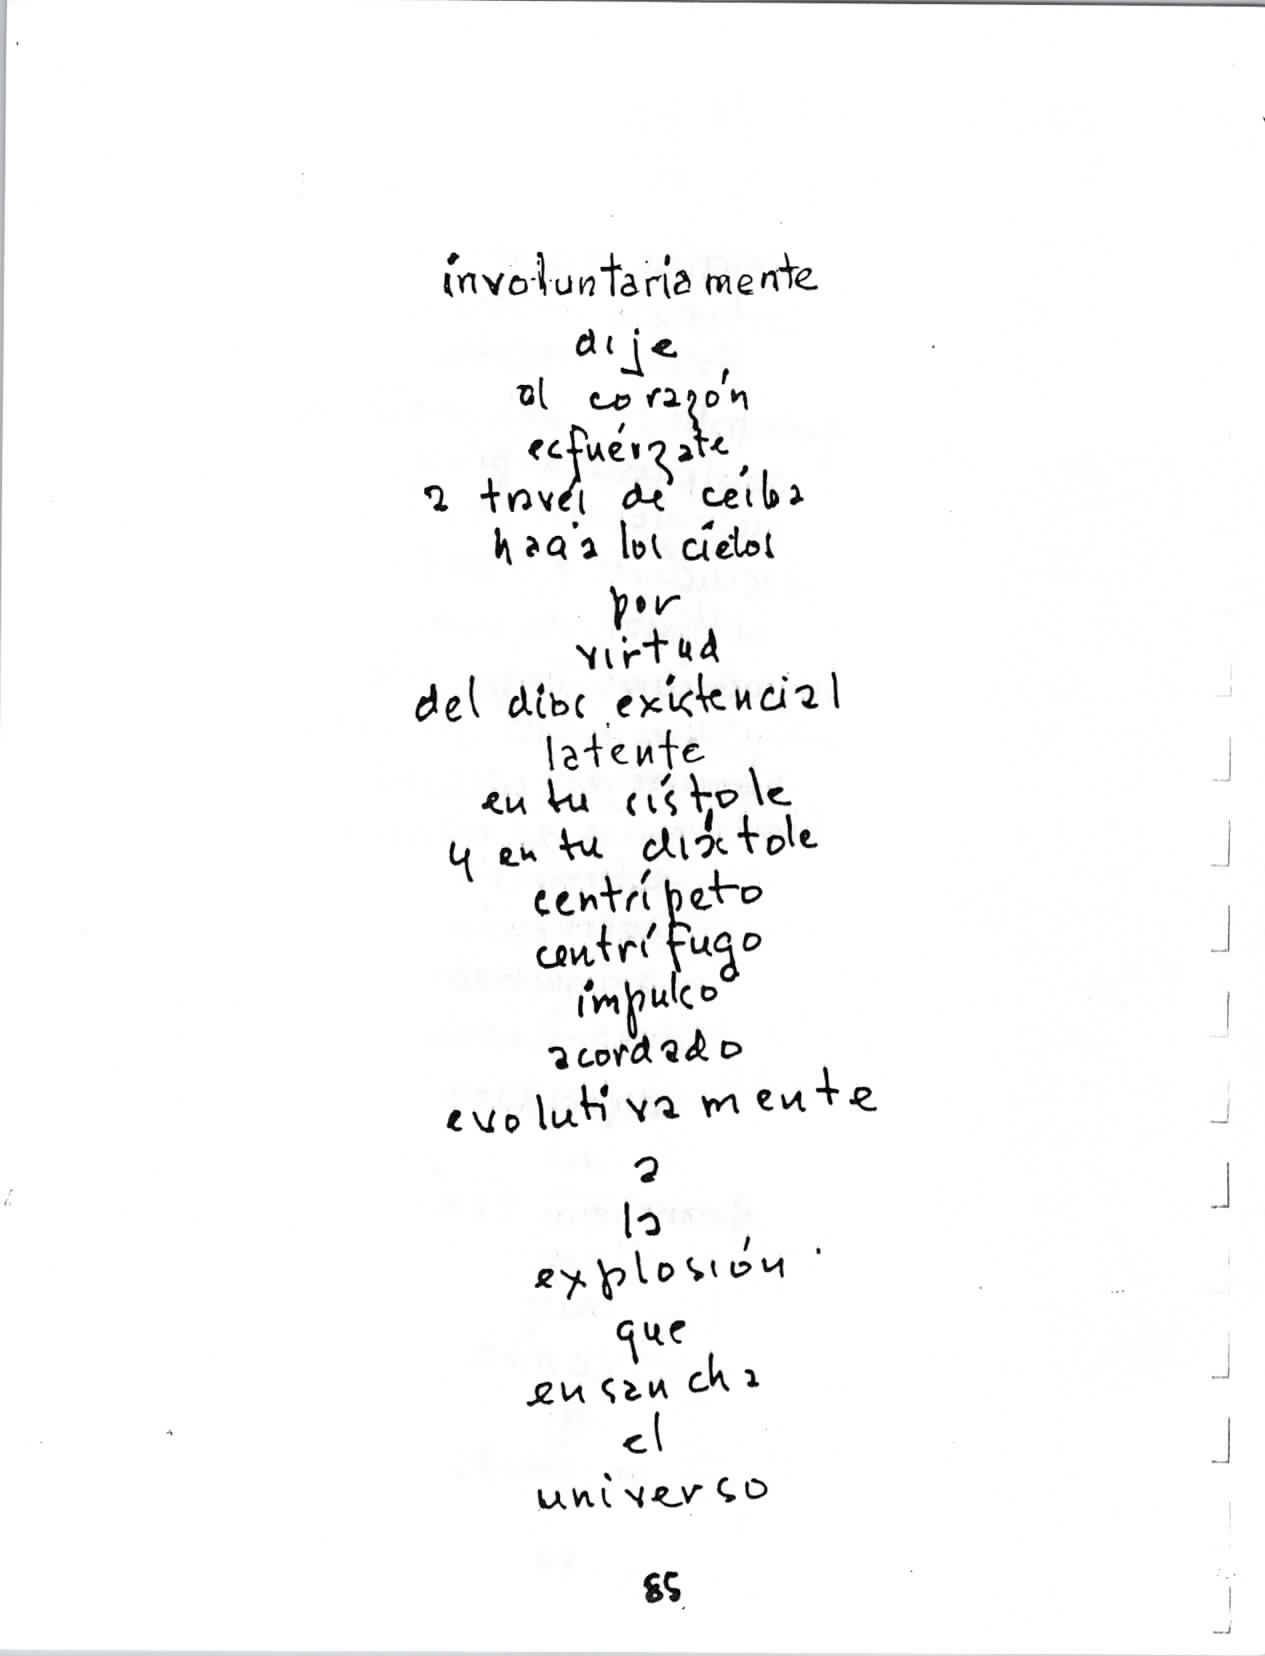 involuntariamente
dije
al corazón
esfuérzate
a través de ceiba
hacia los cielos
por
virtud
del dios existencial
latente
en tu sístole
y en tu diástole
centrípeto
centrífugo
impulso
acordado
evolutivamente
a
la
explosión
que
ensancha
el
universo
85